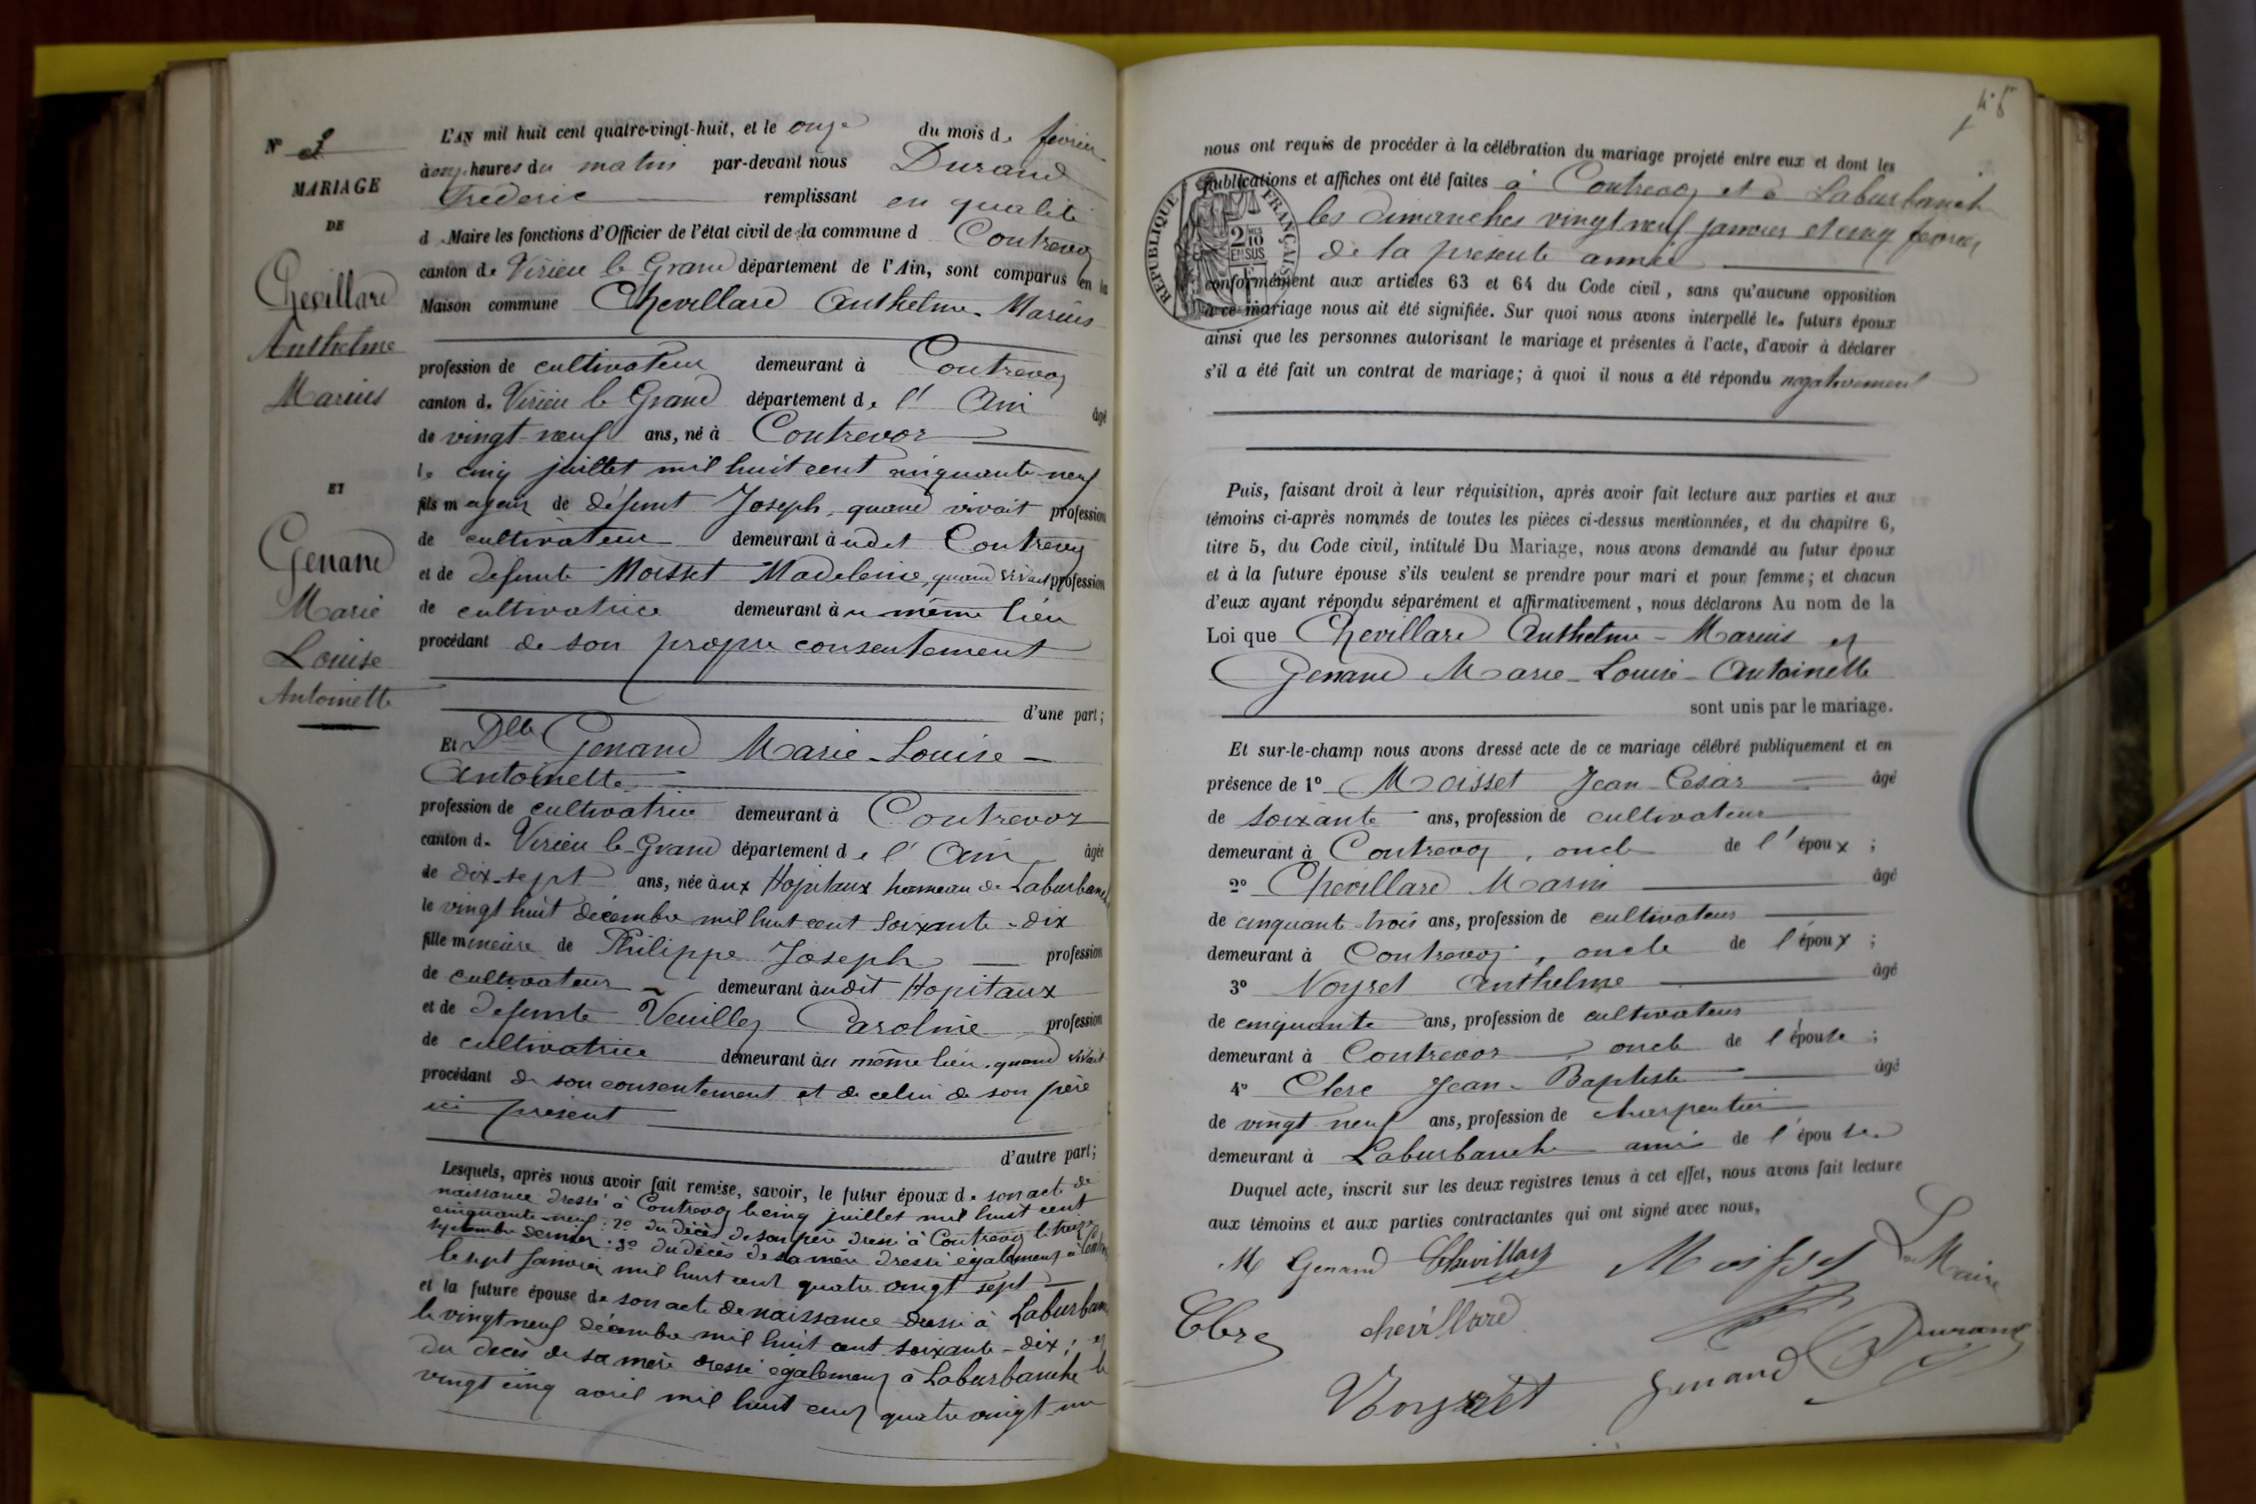 N° 2
MARIAGE
DE
Chevillard
Anthelme
Marius
ET
Genand
Marie
Louise
Antoinette
L'AN mil huit cent quatre-vingt-huit, et le onze du mois de février
à onze heures du matin par-devant nous Durand
Frédéric remplissant en qualité
d Maire les fonctions d'Officier de l'état civil de la commune d Contrevoz
canton de Virieu le Grand département de l'Ain, sont comparus en la
Maison commune Chevillard Anthelme-Marius
profession de cultivateur demeurant à Contrevoz
canton de Virieu le Grand département de l'Ain âgé
de vingt-neuf ans, né à Contrevoz
le cinq juillet mil huit cent cinquante-neuf
fils majeur de défunt Joseph, quand vivait profession
de cultivateur demeurant à udit Contrevoz
et de defunte Moisset Madeleine, quand vivait profession
de cultivatrice demeurant à u même lieu
procédant de son propre consentement
d'une part;
Et Dlle Genand Marie-Louise-
Antoinette
profession de cultivatrice demeurant à Contrevoz
canton de Virieu-le-Grand département de l'Ain âgée
de dix-sept ans, née à ux Hopitaux hameau de Laburbanche
le vingt huit décembre mil huit cent soixante-dix
fille mineure de Philippe Joseph profession
de cultivateur demeurant à udit Hopitaux
et de defunte Veuillez Caroline profession
de cultivatrice demeurant à u même lieu, quand vivait
procédant de son consentement et de celui de son père
ici présent
d'autre part;
Lesquels, après nous avoir fait remise, savoir, le futur époux de son acte de
naissance dressé à Contrevoz le cinq juillet mil huit cent
cinquante-neuf: 2° du décès de son père dressé à Contrevoz le treize
septembre dernier: 3° du décès de sa mère dressé également à
le sept janvier mil huit cent quatre vingt sept
et la future épouse de son acte de naissance dressé à Laburbanche
le vingt neuf décembre mil huit cent soixante-dix; et
du décès de sa mère dressé également à Laburbanche le
vingt cinq avril mil huit cent quatre vingt-un
nous ont requis de procéder à la célébration du mariage projeté entre eux et dont les
publications et affiches ont été faites à Contrevoz et à Laburbanche
les dimanches vingt neuf janvier et cinq février
de la presente année
RÉPUBLIQUE FRANÇAISE
2 MES
10
EN SUS
conformément aux articles 63 et 64 du Code civil, sans qu'aucune opposition
à ce mariage nous ait été signifiée. Sur quoi nous avons interpellé les futurs époux
ainsi que les personnes autorisant le mariage et présentes à l'acte, d'avoir à déclarer
s'il a été fait un contrat de mariage; à quoi il nous a été répondu négativement
Puis, faisant droit à leur réquisition, après avoir fait lecture aux parties et aux
témoins ci-après nommés de toutes les pièces ci-dessus mentionnées, et du chapitre 6,
titre 5, du Code civil, intitulé Du Mariage, nous avons demandé au futur époux
et à la future épouse s'ils veulent se prendre pour mari et pour femme; et chacun
d'eux ayant répondu séparément et affirmativement, nous déclarons Au nom de la
Loi que Chevillard Anthelme-Marius et
Genand Marie-Louise-Antoinette
sont unis par le mariage.
Et sur-le-champ nous avons dressé acte de ce mariage célébré publiquement et en
présence de 1° Moisset Jean Cesar âgé
de soixante ans, profession de cultivateur
demeurant à Contrevoz, oncle de l'époux;
2° Chevillard Marin âgé
de cinquante-trois ans, profession de cultivateur
demeurant à Contrevoz, oncle de l'époux;
3° Noyret Anthelme âgé
de cinquante ans, profession de cultivateur
demeurant à Contrevoz, oncle de l'épouse;
4° Clerc Jean-Baptiste âgé
de vingt neuf ans, profession de charpentier
demeurant à Laburbanche ami de l'épouse.
Duquel acte, inscrit sur les deux registres tenus à cet effet, nous avons fait lecture
aux témoins et aux parties contractantes qui ont signé avec nous,
M Genand Chevillard Moisset Le Maire
Clerc chevillard Durand
Noyret Genand